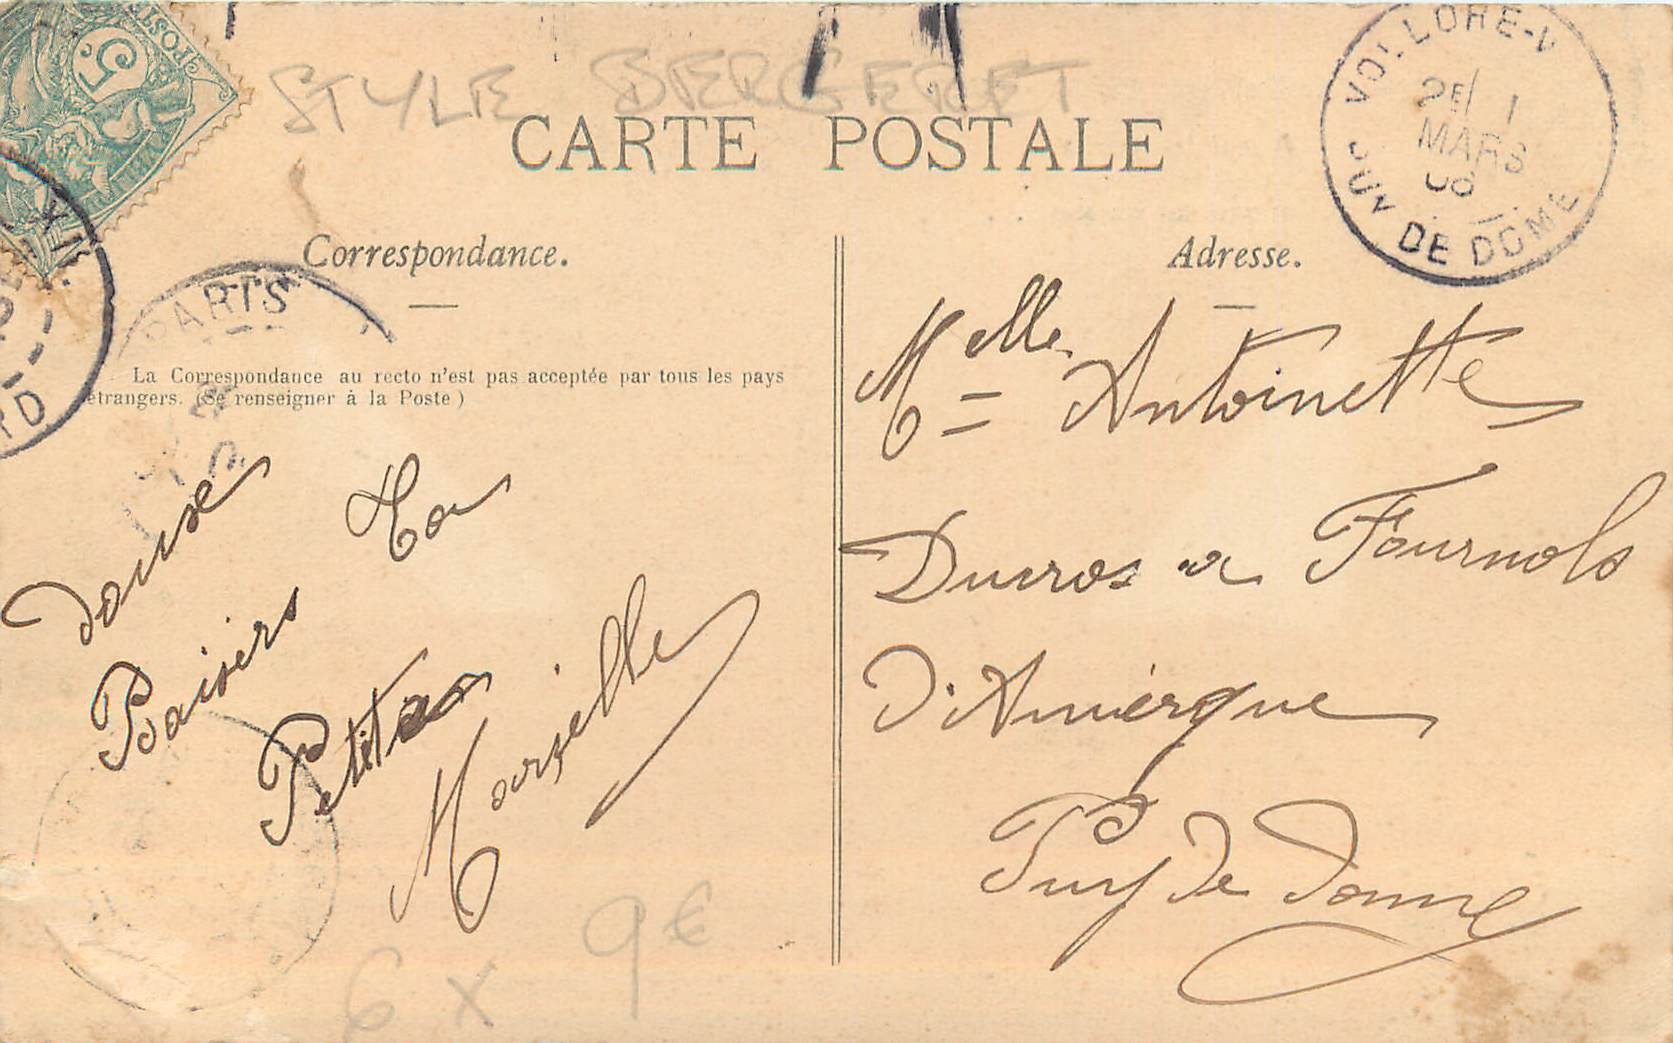 5c
POSTES
STYLE BERGERET
CARTE POSTALE
VOLLORE-V
PUY DE DOME
2E/ 1
MARS
08
Correspondance.
Adresse.
PARIS
XVI
La Correspondance au recto n'est pas acceptée par tous les pays
étrangers. (Se renseigner à la Poste)
douse
Baisers Ta
Petite
Marzelle
Melle Antoinette
Ducros a Fournols
D'Auvergne
Puy de Dome
6 x 9€